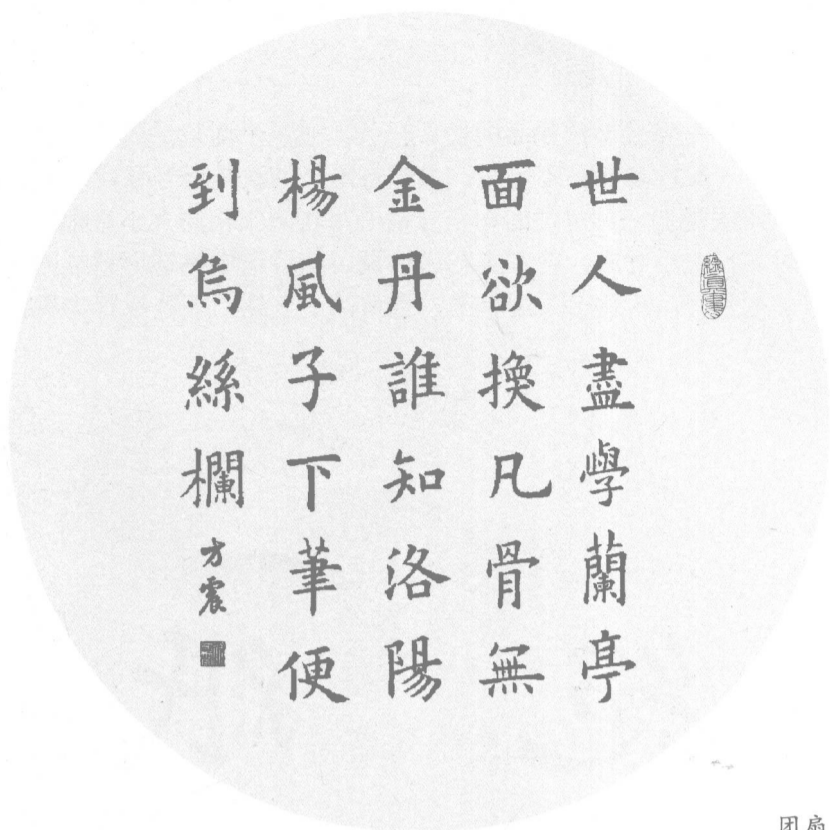 世人盡學蘭亭
面欲換凡骨無
金丹誰知洛陽
楊風子下筆便
到烏絲欄
方震
团扇